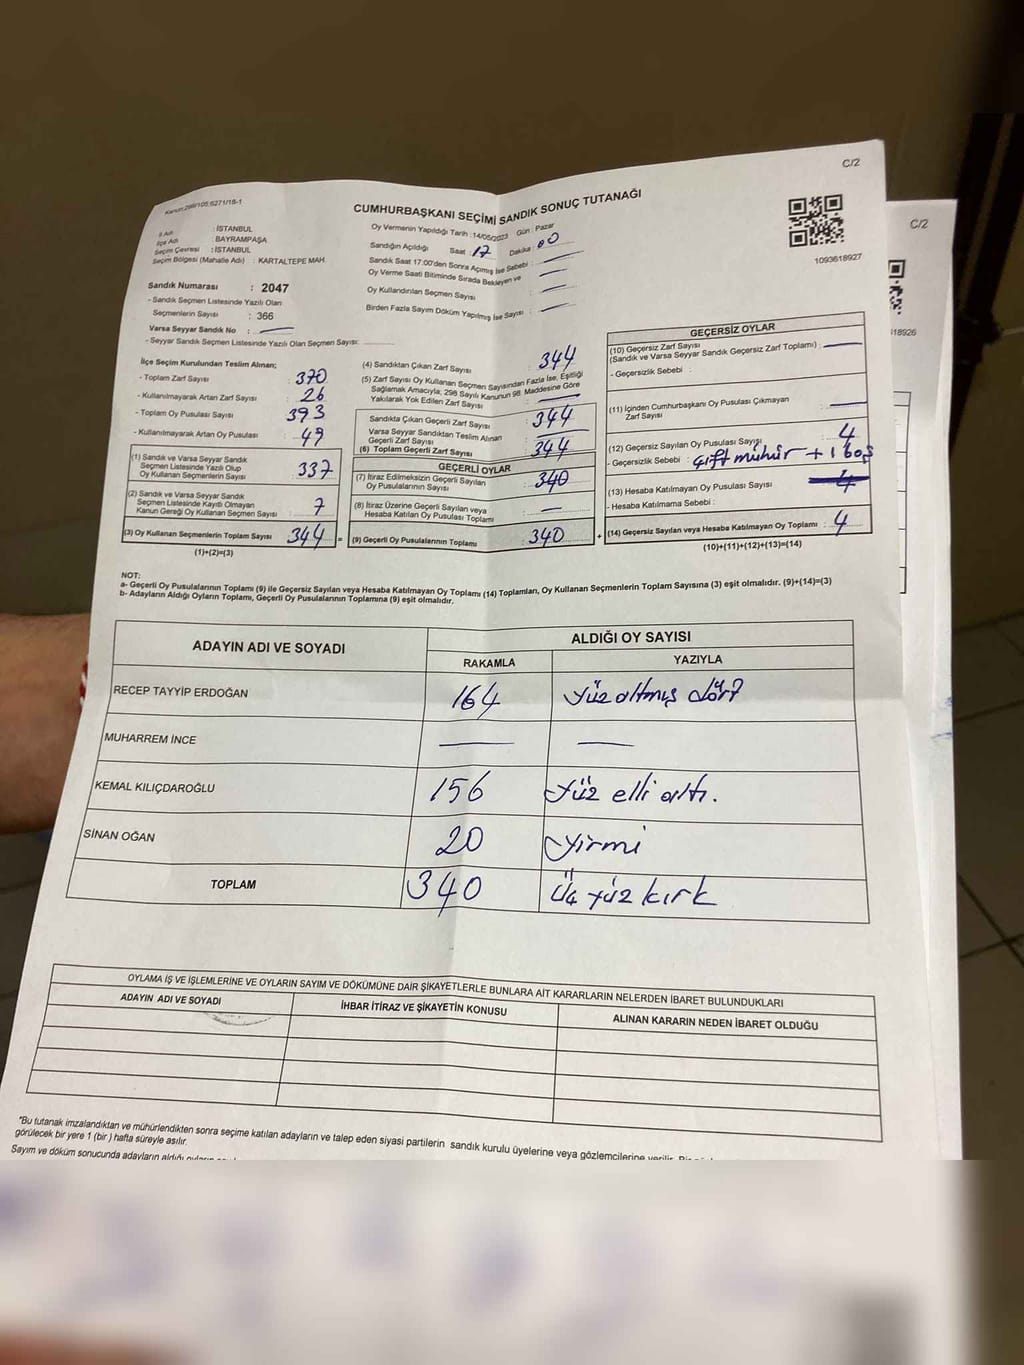 C/2
Kanun:298/105;6271/18-1
CUMHURBAŞKANI SEÇİMİ SANDIK SONUÇ TUTANAĞI
C/2
İl Adı : İSTANBUL
İlçe Adı : BAYRAMPAŞA
Seçim Çevresi : İSTANBUL
Seçim Bölgesi (Mahalle Adı) : KARTALTEPE MAH.
Oy Vermenin Yapıldığı Tarih : 14/05/2023 Gün : Pazar
Sandığın Açıldığı Saat : 17 Dakika : 00
Sandık Saat 17:00'den Sonra Açımış İse Sebebi :
Oy Verme Saati Bitiminde Sırada Bekleyen ve
Oy Kullandırılan Seçmen Sayısı :
Birden Fazla Sayım Döküm Yapılmış İse Sayısı :
1093618927
18926
Sandık Numarası : 2047
- Sandık Seçmen Listesinde Yazılı Olan
Seçmenlerin Sayısı : 366
Varsa Seyyar Sandık No :
- Seyyar Sandık Seçmen Listesinde Yazılı Olan Seçmen Sayısı:
İlçe Seçim Kurulundan Teslim Alınan;
- Toplam Zarf Sayısı : 370
- Kullanılmayarak Artan Zarf Sayısı : 26
- Toplam Oy Pusulası Sayısı : 393
- Kullanılmayarak Artan Oy Pusulası : 49
(1) Sandık ve Varsa Seyyar Sandık
Seçmen Listesinde Yazılı Olup
Oy Kullanan Seçmenlerin Sayısı : 337
(2) Sandık ve Varsa Seyyar Sandık
Seçmen Listesinde Kayıtlı Olmayan
Kanun Gereği Oy Kullanan Seçmen Sayısı : 7
(3) Oy Kullanan Seçmenlerin Toplam Sayısı : 344 =
(1)+(2)=(3)
(4) Sandıktan Çıkan Zarf Sayısı : 344
(5) Zarf Sayısı Oy Kullanan Seçmen Sayısından Fazla İse, Eşitliği
Sağlamak Amacıyla; 298 Sayılı Kanunun 98. Maddesine Göre
Yakılarak Yok Edilen Zarf Sayısı :
Sandıkta Çıkan Geçerli Zarf Sayısı : 344
Varsa Seyyar Sandıktan Teslim Alınan
Geçerli Zarf Sayısı :
(6) Toplam Geçerli Zarf Sayısı : 344
GEÇERLİ OYLAR
(7) İtiraz Edilmeksizin Geçerli Sayılan
Oy Pusulasının Sayısı : 340
(8) İtiraz Üzerine Geçerli Sayılan veya
Hesaba Katılan Oy Pusulası Toplamı :
(9) Geçerli Oy Pusulalarının Toplamı : 340 +
GEÇERSİZ OYLAR
(10) Geçersiz Zarf Sayısı
(Sandık ve Varsa Seyyar Sandık Geçersiz Zarf Toplamı) :
- Geçersizlik Sebebi :
(11) İçinden Cumhurbaşkanı Oy Pusulası Çıkmayan
Zarf Sayısı :
(12) Geçersiz Sayılan Oy Pusulası Sayısı : 4
- Geçersizlik Sebebi : çift mühür + 1 boş
(13) Hesaba Katılmayan Oy Pusulası Sayısı : 4
- Hesaba Katılmama Sebebi :
(14) Geçersiz Sayılan veya Hesaba Katılmayan Oy Toplamı : 4
(10)+(11)+(12)+(13)=(14)
NOT:
a- Geçerli Oy Pusulalarının Toplamı (9) ile Geçersiz Sayılan veya Hesaba Katılmayan Oy Toplamı (14) Toplamları, Oy Kullanan Seçmenlerin Toplam Sayısına (3) eşit olmalıdır. (9)+(14)=(3)
b- Adayların Aldığı Oyların Toplamı, Geçerli Oy Pusulalarının Toplamına (9) eşit olmalıdır.
ADAYIN ADI VE SOYADI ALDIĞI OY SAYISI
RAKAMLA YAZIYLA
RECEP TAYYİP ERDOĞAN 164 Yüz altmış dört
MUHARREM İNCE
KEMAL KILIÇDAROĞLU 156 Yüz elli altı.
SİNAN OĞAN 20 Yirmi
TOPLAM 340 Üç yüz kırk
OYLAMA İŞ VE İŞLEMLERİNE VE OYLARIN SAYIM VE DÖKÜMÜNE DAİR ŞİKAYETLERLE BUNLARA AİT KARARLARIN NELERDEN İBARET BULUNDUKLARI
ADAYIN ADI VE SOYADI İHBAR İTİRAZ VE ŞİKAYETİN KONUSU ALINAN KARARIN NEDEN İBARET OLDUĞU
*Bu tutanak imzalandıktan ve mühürlendikten sonra seçime katılan adayların ve talep eden siyasi partilerin sandık kurulu üyelerine veya gözlemcilerine verilir. Bir
görülecek bir yere 1 (bir) hafta süreyle asılır.
Sayım ve döküm sonucunda adayların aldığı oyların